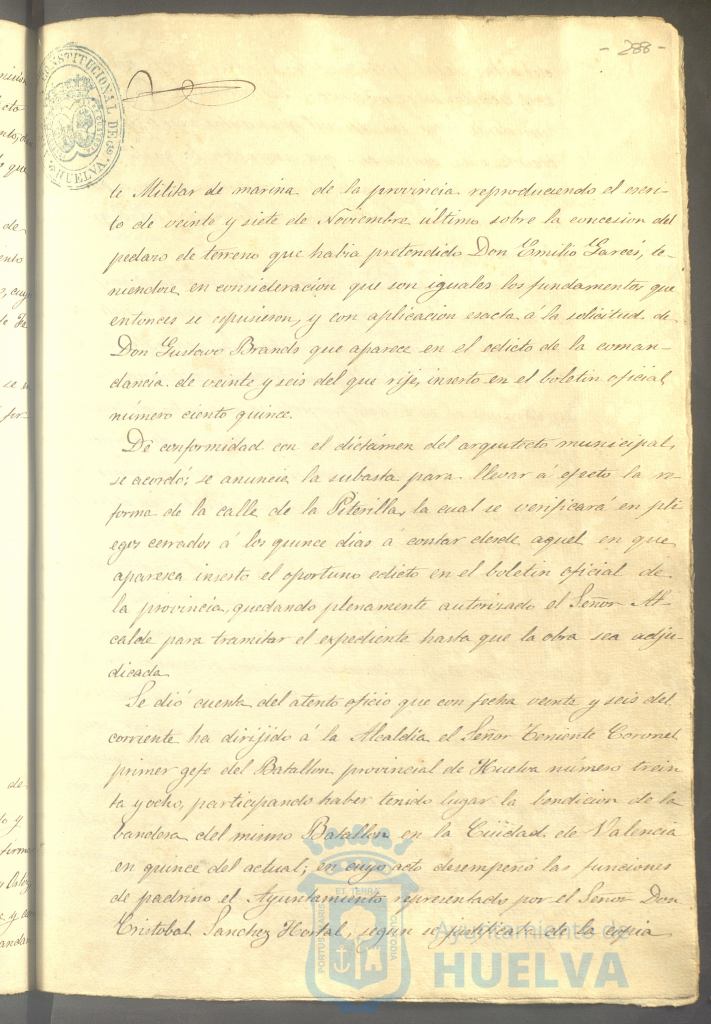 - 288 -
CONSTITUCIONAL DE
HUELVA.
te Militar de marina de la provincia reproduciendo el escri-
to de veinte y siete de Noviembre último sobre la concesion del
pedazo de terreno que habia pretendido Don Emilio Garcés, te-
niendose en consideracion que son iguales los fundamentos que
entonces se espusieron, y con aplicacion esacta á la solicitud de
Don Gustavo Brands que aparece en el edicto de la coman-
dancia de veinte y seis del que rije, inserto en el boletin oficial
número ciento quince.
De conformidad con el dictámen del arquitecto municipal,
se acordó; se anuncie la subasta para llevar á efecto la re-
forma de la calle de la Piterilla, la cual se verificará en pli-
egos cerrados á los quince dias á contar desde aquel en que
aparesca inserto el oportuno edicto en el boletin oficial de
la provincia, quedando plenamente autorizado el Señor Al-
calde para tramitar el expediente hasta que la obra sea adju-
dicada
Se dió cuenta del atento oficio que con fecha veinte y seis del
corriente ha dirijido á la Alcaldia el Señor Teniente Coronel
primer gefe del Batallon provincial de Huelva número trein
ta y ocho, participando haber tenido lugar la bendicion de la
bandera del mismo Batallon en la Ciudad de Valencia
en quince del actual; en cuyo acto desempeñó las funciones
de padrino el Ayuntamiento representado por el Señor Don
Cristobal Sanchez Hostal, segun se justifica de la copia
PORTUS MARIS ET TERRAE CUSTODIA
Ayuntamiento de
HUELVA